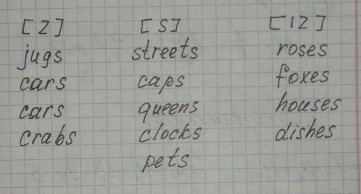 [Z] [S] [IZ]
jugs streets roses
cars caps foxes
cars queens houses
crabs clocks dishes
pets